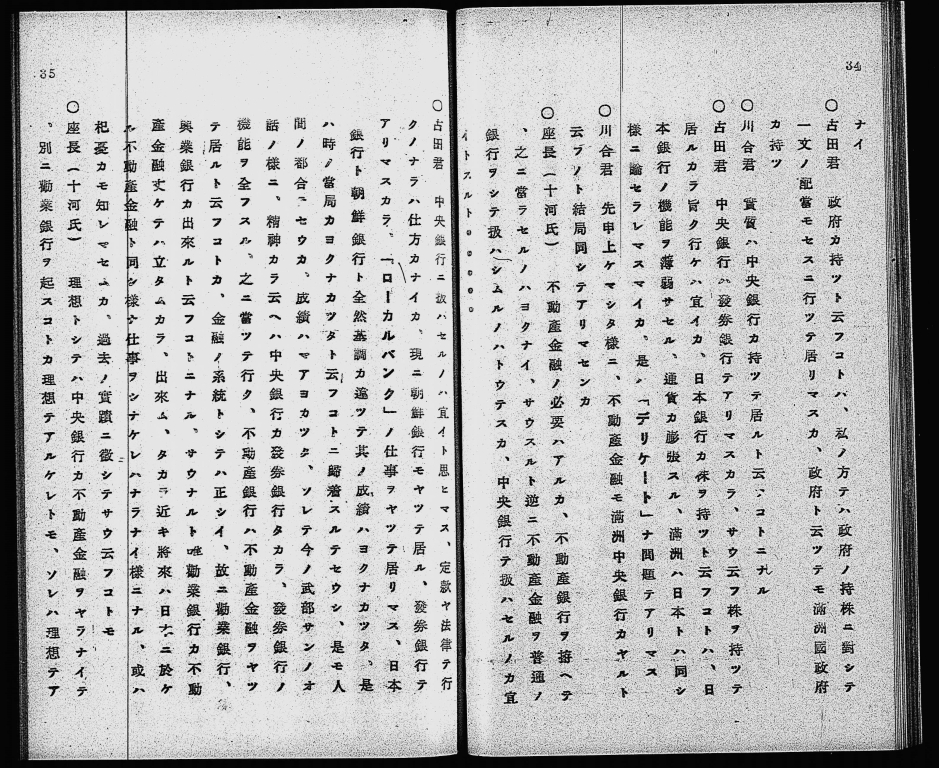 34
ナイ
〇古田君　政府カ持ツト云フコトハ、私ノ方テハ政府ノ持株ニ對シテ
一文ノ配當モセスニ行ツテ居リマスカ、政府ト云ツテモ滿洲國政府
カ持ツ
〇川合君　實質ハ中央銀行カ持ツテ居ルト云フコトニナル
〇古田君　中央銀行ハ發券銀行テアリマスカラ、サウ云フ株ヲ持ツテ
居ルカラ旨ク行ケハ宜イカ、日本銀行カ株ヲ持ツト云フコトハ、日
本銀行ノ機能ヲ薄弱サセル、通貨カ膨張スル、滿洲ハ日本トハ同シ
樣ニ論セラレマスマイカ、是ハ「デリケート」ナ問題テアリマス
〇川合君　先申上ケマシタ樣ニ、不動産金融モ滿洲中央銀行カヤルト
云フノト結局同シテアリマセンカ
〇座長（十河氏）　不動産金融ノ必要ハアルカ、不動産銀行ヲ拵ヘテ
、之ニ當ラセルノハヨクナイ、サウスルト逆ニ不動産金融ヲ普通ノ
銀行ヲシテ扱ハシムルノハトウテスカ、中央銀行テ扱ハセルノカ宜
イトスルト。。。。。
35
〇古田君　中央銀行ニ扱ハセルノハ宜イト思ヒマス、定款ヤ法律テ行
クノナラハ仕方カナイカ、現ニ朝鮮銀行モヤツテ居ル、發券銀行テ
アリマスカラ、「ローカルバンク」ノ仕事ヲヤツテ居リマス、日本
銀行ト朝鮮銀行ト全然基調カ違ツテ其ノ成績ハヨクナカツタ、是
ハ時ノ當局カヨクナカツタト云フコトニ歸着スルテセウシ、是モ人
間ノ都合テセウカ、成績ハマアヨカツタ、ソレテ今ノ武部サンノオ
話ノ樣ニ、精神カラ云ヘハ中央銀行カ發券銀行タカラ、發券銀行ノ
機能ヲ全フスル、之ニ當ツテ行ク、不動産銀行ハ不動産金融ヲヤツ
テ居ルト云フコトカ、金融ノ系統トシテハ正シイ、故ニ勸業銀行、
興業銀行カ出來ルト云フコトニナル、サウナルト唯勸業銀行カ不動
産金融丈ケテハ立タムカラ、出來ム、タカラ近キ將來ハ日ナニ於ケ
ル不動産金融ト同シ樣ナ仕事ヲシナケレハナラナイ樣ニナル、或ハ
杞憂カモ知レマセムカ、過去ノ實蹟ニ徵シテサウ云フコトモ
〇座長（十河氏）　理想トシテハ中央銀行カ不動産金融ヲヤラナイテ
、別ニ勸業銀行ヲ起スコトカ理想テアルケレトモ、ソレハ理想テア